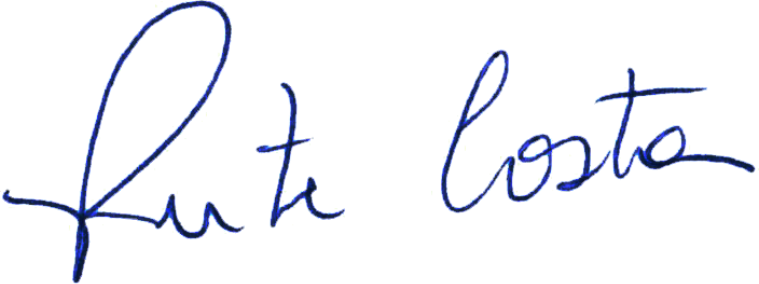 Rute Costa